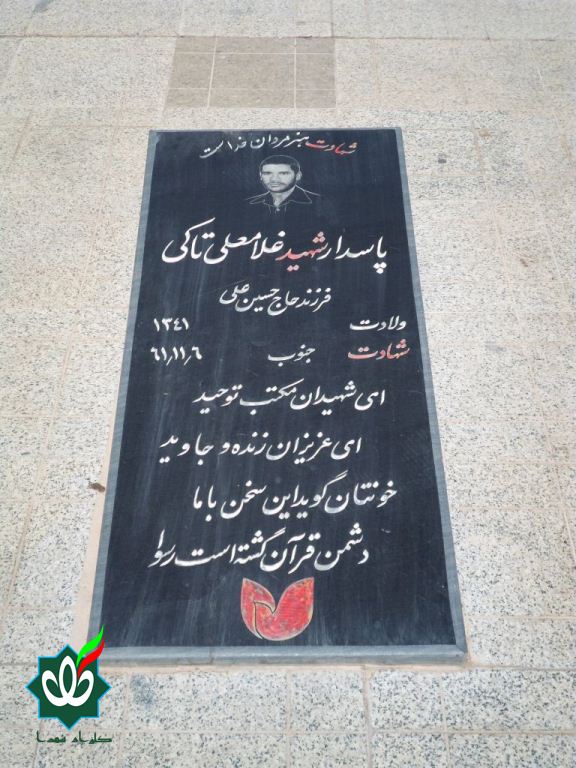 شهادت هنر مردان خداست
پاسدار شهید غلامعلی تاکی
فرزند حاج حسین علی
ولادت ۱۳۴۱
شهادت جنوب ۶۱٫۱۱٫۶
ای شهیدان مکتب توحید
ای عزیزان زنده و جاوید
خونتان گوید این سخن با ما
دشمن قرآن گشته است رسوا
گلزار شهدا